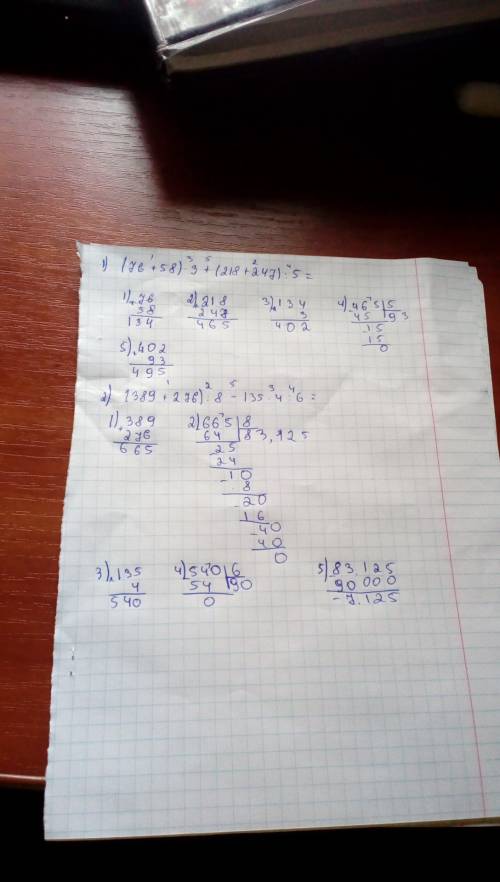 1) (76 + 58) · 3 + (218 + 247) : 5 =
1) +76 2) +218 3) ×134 4) -465|5
58 247 3 45 |93
134 465 402 -15
15
0
5) +402
93
495
2) (389 + 276) : 8 - 135 · 4 : 6 =
1) +389 2) -665|8
276 64 |83,125
665 -25
24
-10
8
-20
16
-40
40
0
3) ×135 4) -540|6 5) -83,125
4 54 |90 90 000
540 0 -7,125